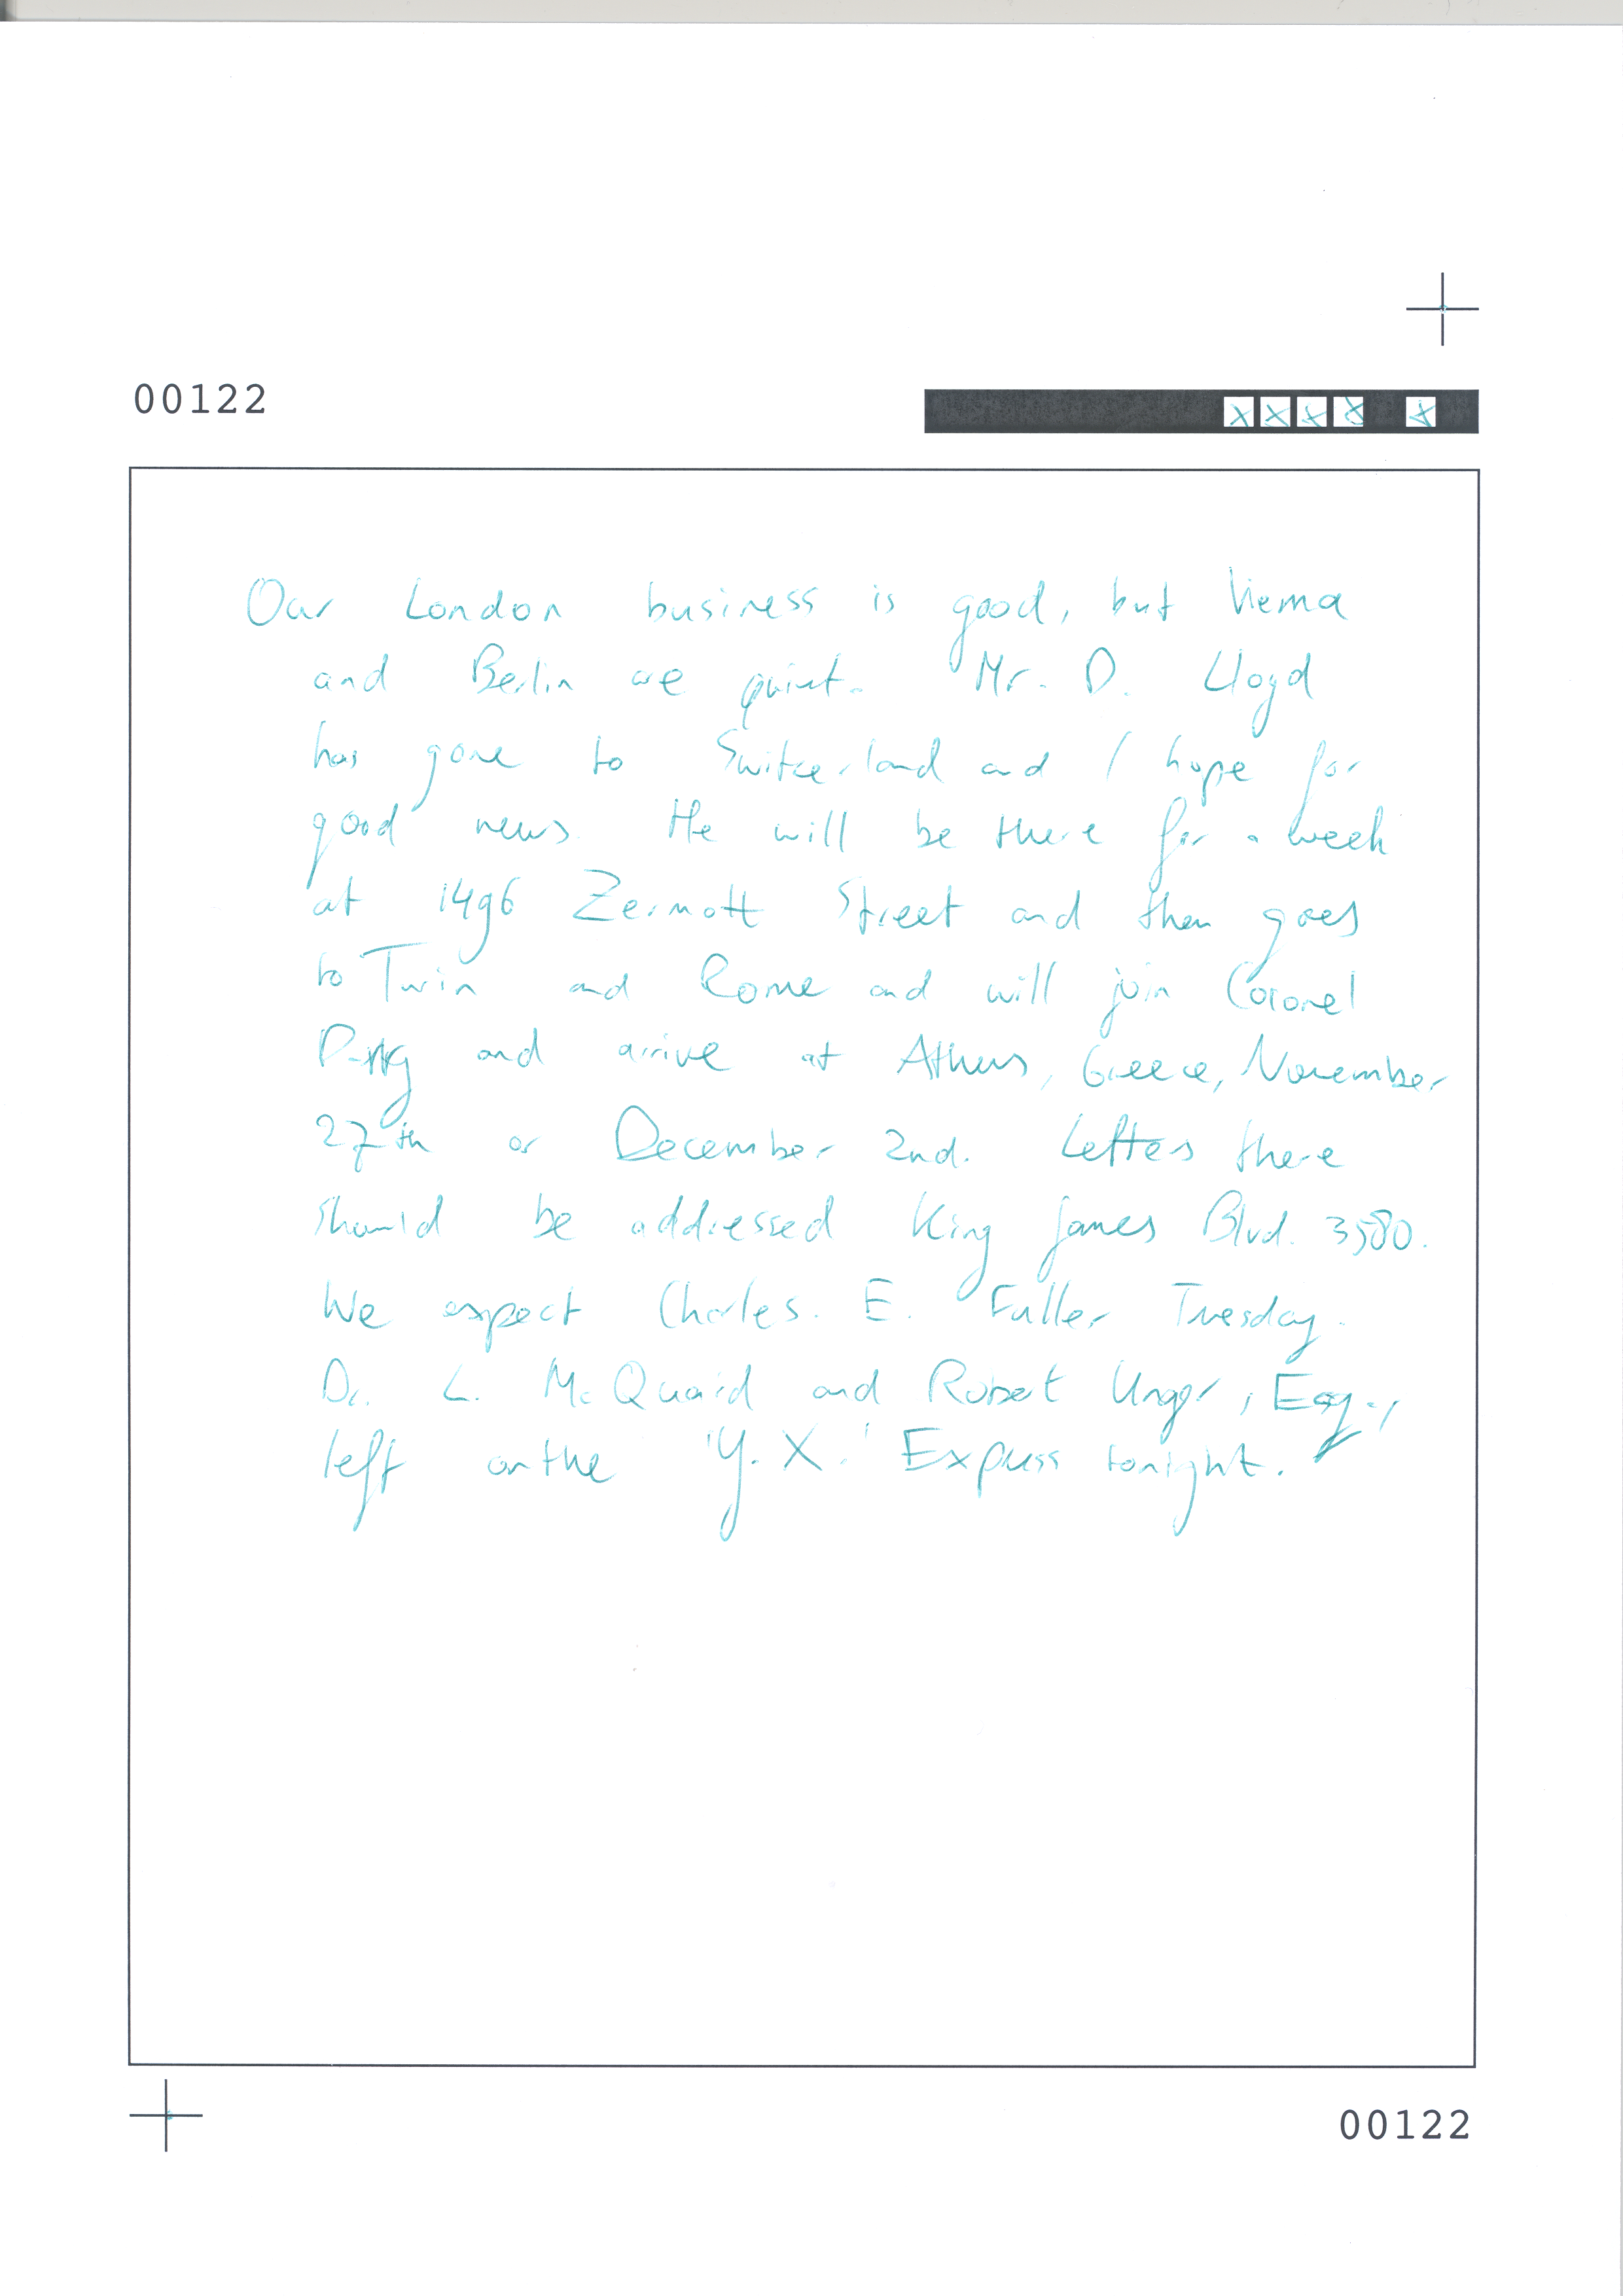 00122
Our London business is good, but Vienna
and Berlin are quiet. Mr. D. Lloyd
has gone to Switzerland and I hope for
good news. He will be there for a week
at 1496 Zermott Street and then goes
to Turin and Rome and will join Colonel
and arrive at Athens, Greece, November
27th or December 2nd. Letters there
should be addressed King James Blvd. 3580.
We expect Charles. E. Fuller Tuesday.
Dr. L. McQuaid and Robert Unger, Esq.,
left on the 'Y. X.' Express tonight.
00122